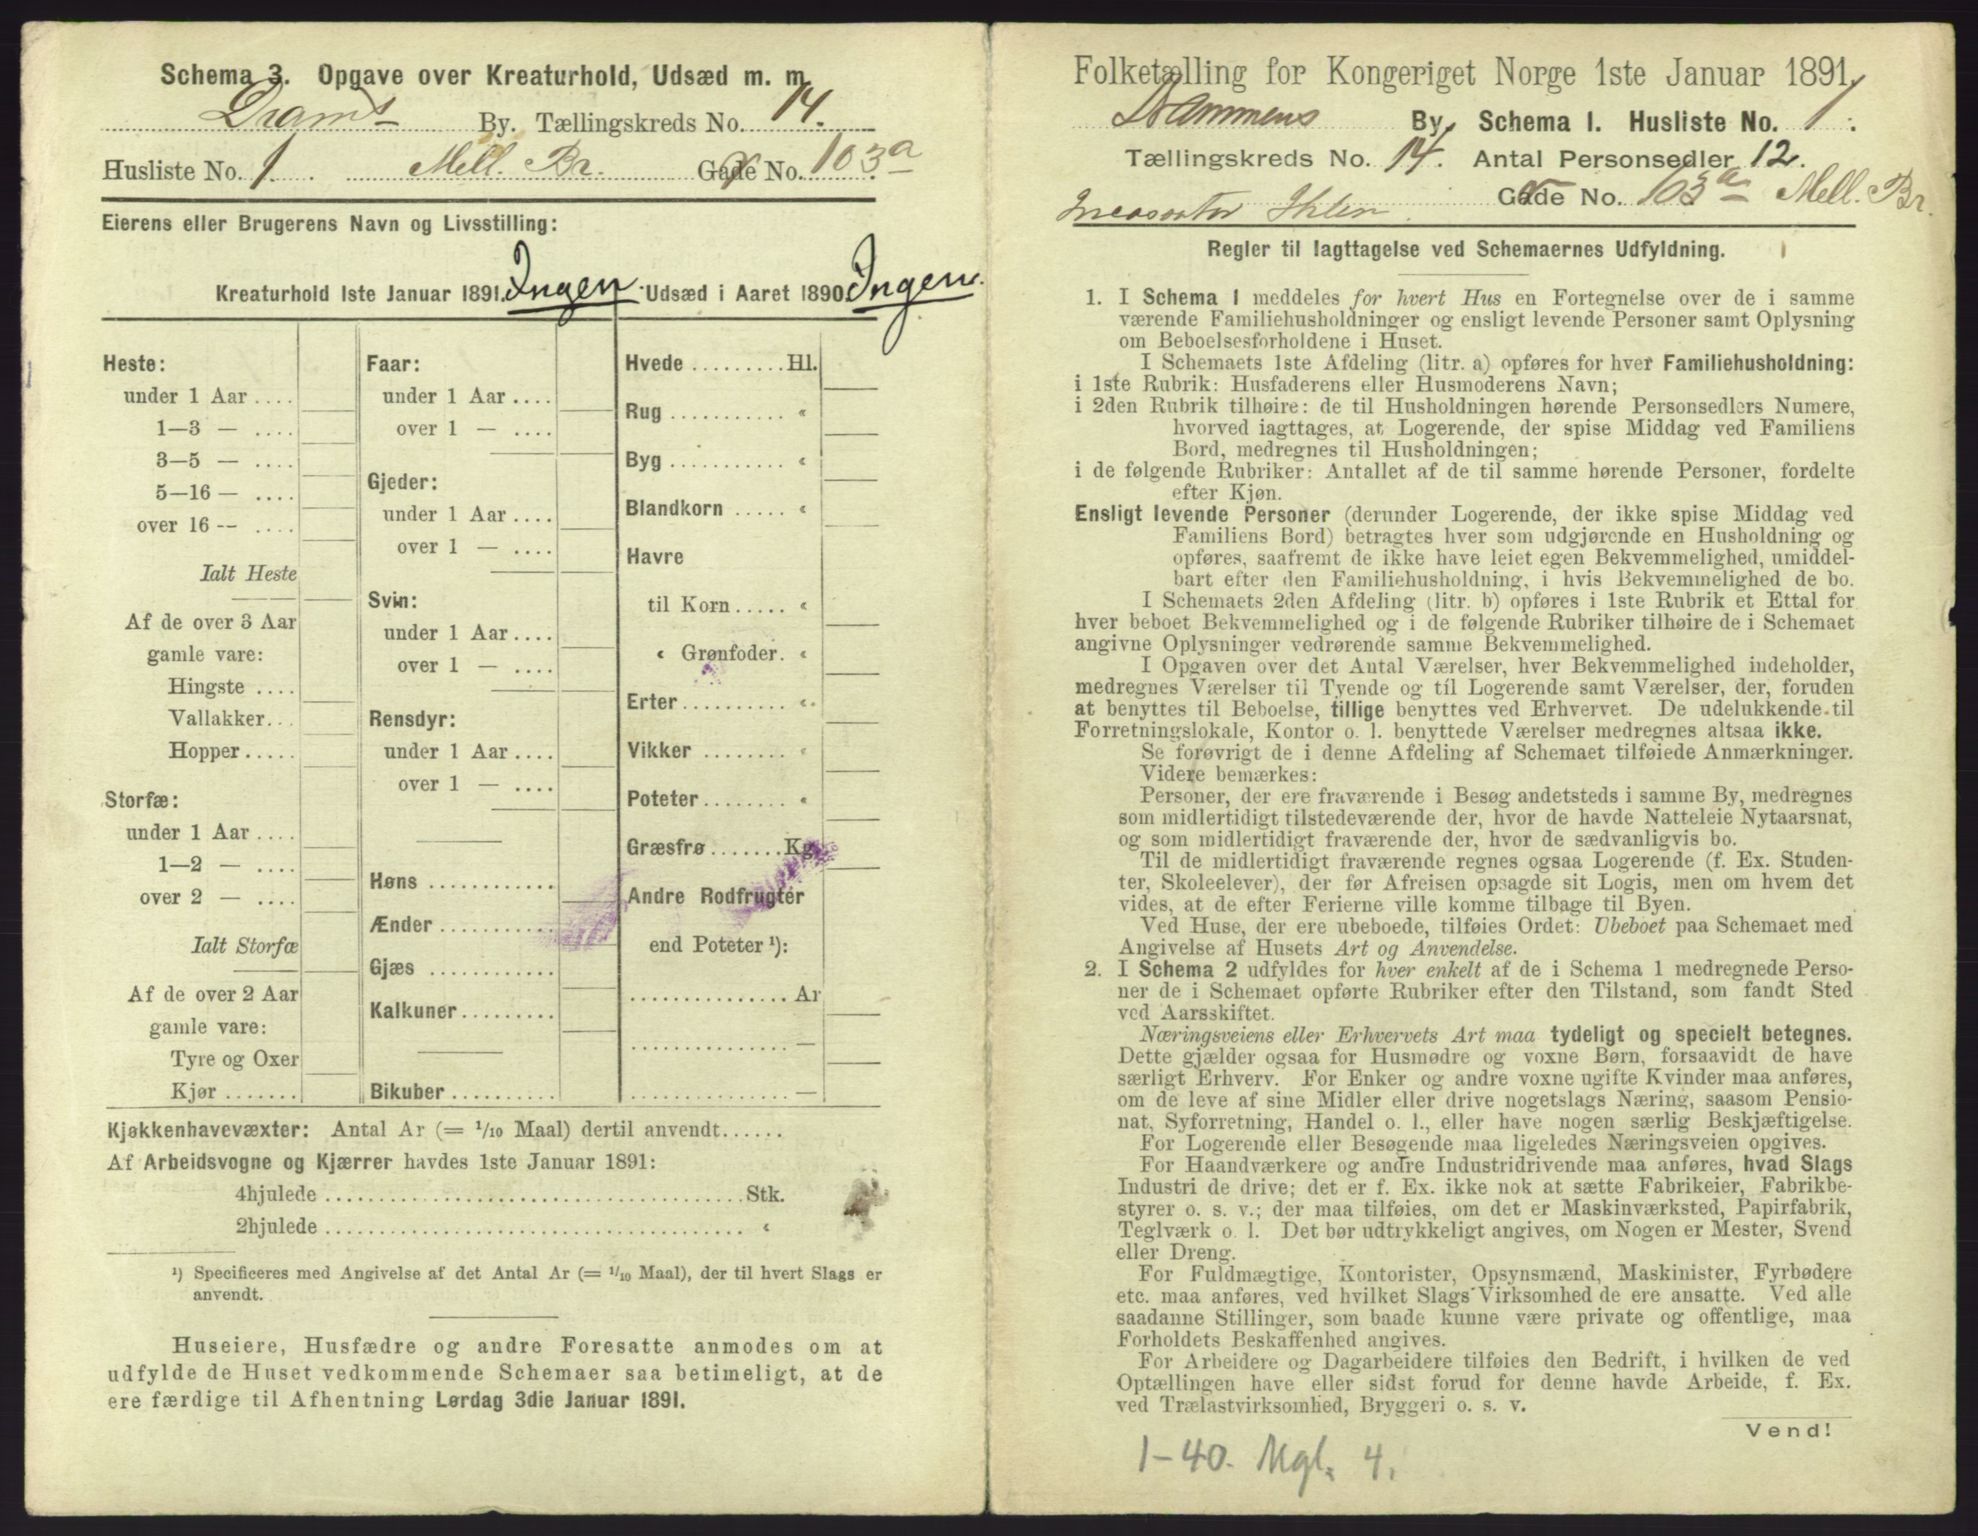 Schema 3. Opgave over Kreaturhold, Udsæd m. m.
Dram's By. Tællingskreds No. 14.
Husliste No. 1. Mell. Br. Gade No. 103a
Eierens eller Brugerens Navn og Livsstilling:
Kreaturhold 1ste Januar 1891. Ingen Udsæd i Aaret 1890 Ingen.
Heste:
under 1 Aar ....
1—3 — ....
3—5 — ....
5—16 — ....
over 16 -- ....
Ialt Heste
Af de over 3 Aar
gamle vare:
Hingste ....
Vallakker...
Hopper.....
Storfæ:
under 1 Aar ....
1—2 — ....
over 2 — ....
Ialt Storfæ
Af de over 2 Aar
gamle vare:
Tyre og Oxer
Kjør .......
Faar:
under 1 Aar ....
over 1 — ....
Gjeder:
under 1 Aar ....
over 1 — ....
Svin:
under 1 Aar ....
over 1 — ....
Rensdyr:
under 1 Aar ....
over 1 — ....
Høns ............
Ænder ...........
Gjæs ............
Kalkuner.........
Bikuber ..........
Hvede .........Hl.
Rug ........... «
Byg ........... «
Blandkorn ..... «
Havre
til Korn..... «
« Grønfoder. «
Erter .......... «
Vikker ........ «
Poteter........ «
Græsfrø .......Kg.
Andre Rodfrugter
end Poteter ¹):
............... Ar
............... —
............... —
Kjøkkenhavevæxter: Antal Ar (= 1/10 Maal) dertil anvendt......
Af Arbeidsvogne og Kjærrer havdes 1ste Januar 1891:
4hjulede ........................................Stk.
2hjulede ........................................ «
¹) Specificeres med Angivelse af det Antal Ar (= 1/10 Maal), der til hvert Slags er
anvendt.
Huseiere, Husfædre og andre Foresatte anmodes om at
udfylde de Huset vedkommende Schemaer saa betimeligt, at de
ere færdige til Afhentning Lørdag 3die Januar 1891.
Folketælling for Kongeriget Norge 1ste Januar 1891.
Drammens By. Schema 1. Husliste No. 1.
Tællingskreds No. 14. Antal Personsedler 12.
Gade No. 103a Mell. Br.
Incassator Ihlen.
Regler til Iagttagelse ved Schemaernes Udfyldning.
1. I Schema 1 meddeles for hvert Hus en Fortegnelse over de i samme
værende Familiehusholdninger og ensligt levende Personer samt Oplysning
om Beboelsesforholdene i Huset.
I Schemaets 1ste Afdeling (litr. a) opføres for hver Familiehusholdning:
i 1ste Rubrik: Husfaderens eller Husmoderens Navn;
i 2den Rubrik tilhøire: de til Husholdningen hørende Personsedlers Numere,
hvorved iagttages, at Logerende, der spise Middag ved Familiens
Bord, medregnes til Husholdningen;
i de følgende Rubriker: Antallet af de til samme hørende Personer, fordelte
efter Kjøn.
Ensligt levende Personer (derunder Logerende, der ikke spise Middag ved
Familiens Bord) betragtes hver som udgjørende en Husholdning og
opføres, saafremt de ikke have leiet egen Bekvemmelighed, umiddel-
bart efter den Familiehusholdning, i hvis Bekvemmelighed de bo.
I Schemaets 2den Afdeling (litr. b) opføres i 1ste Rubrik et Ettal for
hver beboet Bekvemmelighed og i de følgende Rubriker tilhøire de i Schemaet
angivne Oplysninger vedrørende samme Bekvemmelighed.
I Opgaven over det Antal Værelser, hver Bekvemmelighed indeholder,
medregnes Værelser til Tyende og til Logerende samt Værelser, der, foruden
at benyttes til Beboelse, tillige benyttes ved Erhvervet. De udelukkende til
Forretningslokale, Kontor o. l. benyttede Værelser medregnes altsaa ikke.
Se forøvrigt de i denne Afdeling af Schemaet tilføiede Anmærkninger.
Videre bemærkes:
Personer, der ere fraværende i Besøg andetsteds i samme By, medregnes
som midlertidigt tilstedeværende der, hvor de havde Natteleie Nytaarsnat,
og som midlertidigt fraværende der, hvor de sædvanligvis bo.
Til de midlertidigt fraværende regnes ogsaa Logerende (f. Ex. Studen-
ter, Skoleelever), der før Afreisen opsagde sit Logis, men om hvem det
vides, at de efter Ferierne ville komme tilbage til Byen.
Ved Huse, der ere ubeboede, tilføies Ordet: Ubeboet paa Schemaet med
Angivelse af Husets Art og Anvendelse.
2. I Schema 2 udfyldes for hver enkelt af de i Schema 1 medregnede Perso-
ner de i Schemaet opførte Rubriker efter den Tilstand, som fandt Sted
ved Aarsskiftet.
Næringsveiens eller Erhvervets Art maa tydeligt og specielt betegnes.
Dette gjælder ogsaa for Husmødre og voxne Børn, forsaavidt de have
særligt Erhverv. For Enker og andre voxne ugifte Kvinder maa anføres,
om de leve af sine Midler eller drive nogetslags Næring, saasom Pensio-
nat, Syforretning, Handel o. l., eller have nogen særlig Beskjæftigelse.
For Logerende eller Besøgende maa ligeledes Næringsveien opgives.
For Haandværkere og andre Industridrivende maa anføres, hvad Slags
Industri de drive; det er f. Ex. ikke nok at sætte Fabrikeier, Fabrikbe-
styrer o. s. v.; der maa tilføies, om det er Maskinværksted, Papirfabrik,
Teglværk o. l. Det bør udtrykkeligt angives, om Nogen er Mester, Svend
eller Dreng.
For Fuldmægtige, Kontorister, Opsynsmænd, Maskinister, Fyrbødere
etc. maa anføres, ved hvilket Slags Virksomhed de ere ansatte. Ved alle
saadanne Stillinger, som baade kunne være private og offentlige, maa
Forholdets Beskaffenhed angives.
For Arbeidere og Dagarbeidere tilføies den Bedrift, i hvilken de ved
Optællingen have eller sidst forud for denne havde Arbeide, f. Ex.
ved Trælastvirksomhed, Bryggeri o. s. v.
Vend!
1-40. Mgl. 4.